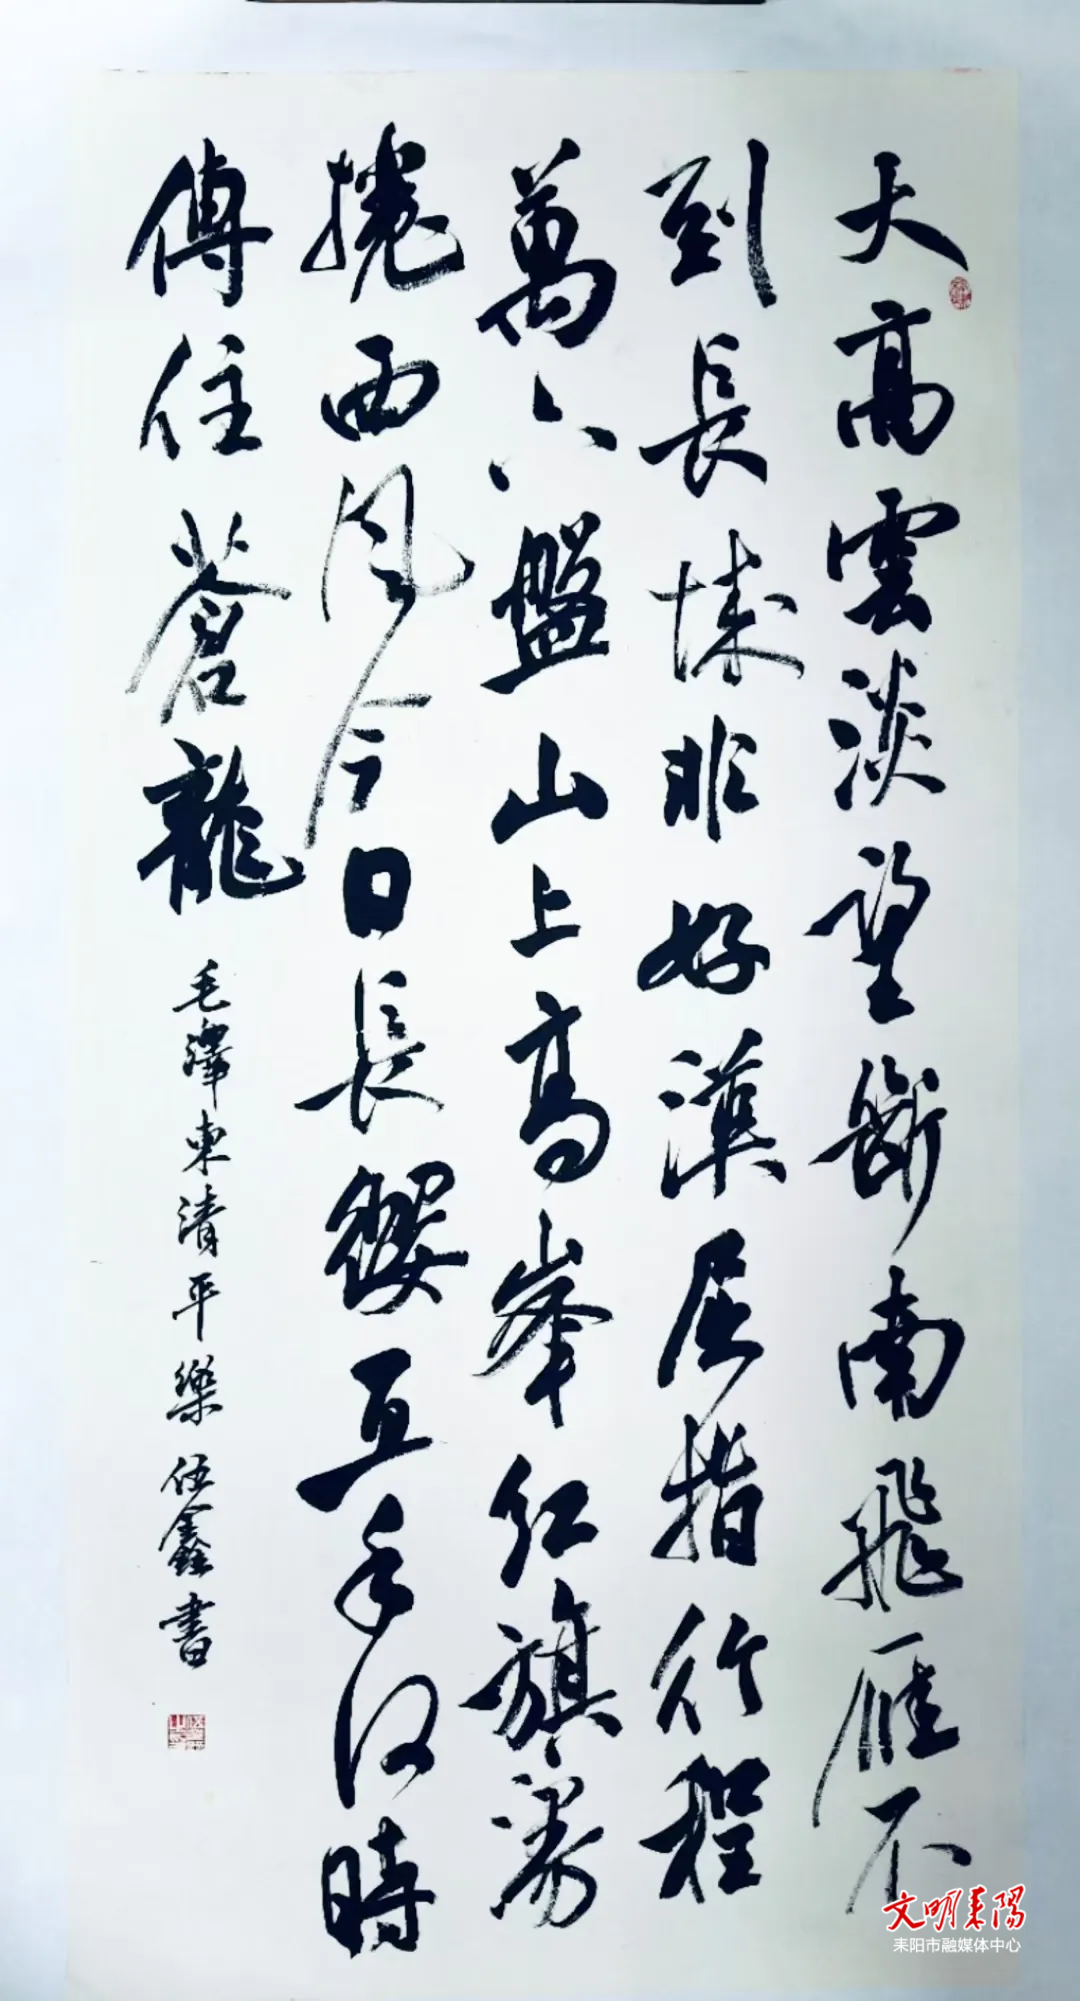 天高雲淡望斷南飛雁不
到長城非好漢屈指行程
萬六盤山上高峯紅旗漫
捲西風今日長纓在手何時
縛住蒼龍
毛澤東清平樂伍鑫書
文明耒陽
耒阳市融媒体中心